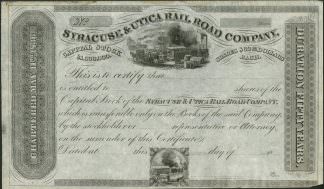 No
SYRACUSE & UTICA RAIL ROAD COMPANY,
CAPITAL STOCK
SHARES $50 DOLLARS
EACH.
This is to certify that
is entitled to shares of the
Capital Stock of the SYRACUSE & UTICA RAIL ROAD COMPANY,
which is transferable only on the Books of the said Company,
by the stockholder or representative or Attorney,
on the surrender of this Certificate.
Dated at this day of
CHARTERED MAY
DURATION FIFTY YEARS.